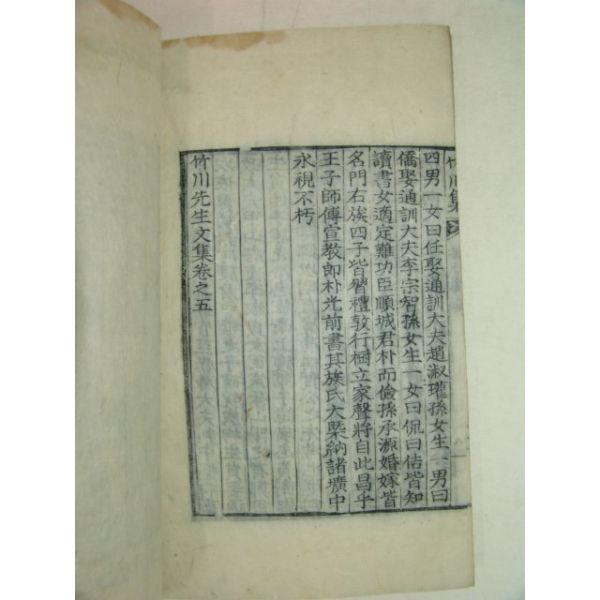 竹川集
四男一女曰任娶通訓大夫趙淑瓘孫女生一男曰
僑娶通訓大夫李宗智孫女生一女曰侃曰佶皆知
讀書女適定難功臣順城君朴而儉孫承源婚嫁皆
名門右族四子皆習禮敦行樹立家聲將自此昌乎
王子師傅宣敎郎朴光前書其族氏大槩納諸壙中
永視不朽
竹川先生文集卷之五